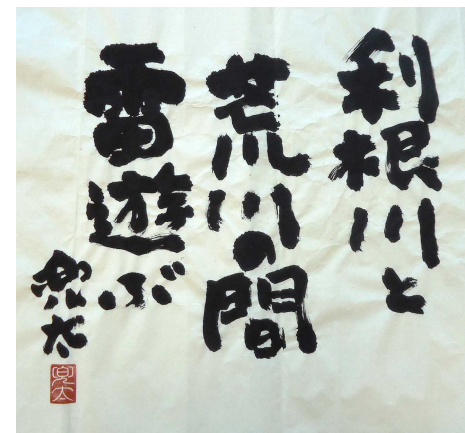 利根川と
荒川の間
雷遊ぶ
兜太
兜太